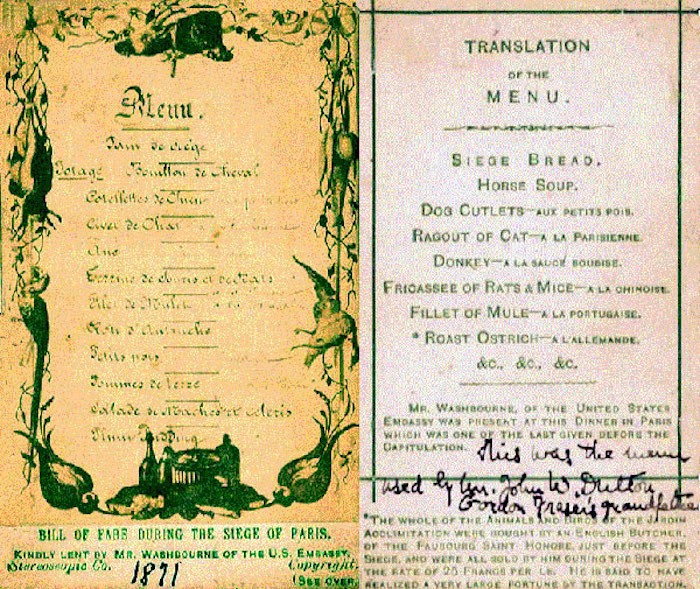 Menu.
Pain de siège
Potage Bouillon de Cheval
Cotelettes de Chien
Civet de Chat
Ane
Terrine de Souris et de Rats
Filet de Mulet
Roti d'Autruche
Petits pois
Pommes de terre
Salade de Maches et Celeris
Plum Pudding
BILL OF FARE DURING THE SIEGE OF PARIS.
KINDLY LENT BY MR. WASHBOURNE OF THE U.S. EMBASSY.
Stereoscopic Co. 1871 Copyright.
(SEE OVER
TRANSLATION
OF THE
MENU.
SIEGE BREAD.
HORSE SOUP.
DOG CUTLETS—AUX PETITS POIS.
RAGOUT OF CAT—A LA PARISIENNE.
DONKEY—A LA SAUCE SOUBISE.
FRICASSEE OF RATS & MICE—A LA CHINOISE.
FILLET OF MULE—A LA PORTUGAISE.
* ROAST OSTRICH—A L'ALLEMANDE.
&C., &C., &C.
MR. WASHBOURNE, OF THE UNITED STATES
EMBASSY WAS PRESENT AT THIS DINNER IN PARIS
WHICH WAS ONE OF THE LAST GIVEN BEFORE THE
CAPITULATION. This was the menu
used by Mr. John W. Dutton
Gordon Fraser's grandfather
*THE WHOLE OF THE ANIMALS AND BIRDS OF THE JARDIN
ACCLIMITATION WERE BOUGHT BY AN ENGLISH BUTCHER,
OF THE FAUBOURG SAINT HONORE, JUST BEFORE THE
SIEGE, AND WERE ALL SOLD BY HIM DURING THE SIEGE AT
THE RATE OF 25 FRANCS PER LB. HE IS SAID TO HAVE
REALIZED A VERY LARGE FORTUNE BY THE TRANSACTION.